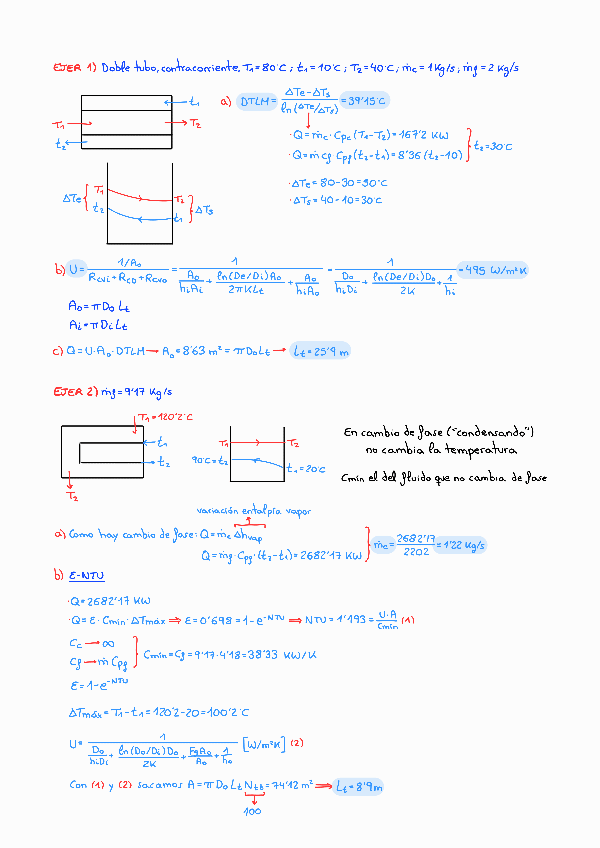 EJER 1) Doble tubo, contracorriente, T1 = 80°C ; t1 = 10°C ; T2 = 40°C ; ṁc = 1 Kg/s ; ṁf = 2 Kg/s
t1
T1
T2
t2
a) DTLM = (ΔTe - ΔTs) / ln(ΔTe/ΔTs) = 39'15°C
· Q = ṁc · Cpc (T1 - T2) = 167'2 KW
· Q = ṁcf Cpf (t2 - t1) = 8'36 (t2 - 10)
t2 = 30°C
· ΔTe = 80 - 30 = 50°C
· ΔTs = 40 - 10 = 30°C
ΔTe
T1
t2
T2
t1
ΔTs
b) U = (1/Ao) / (Rcvi + Rcd + Rcvo) = 1 / (Ao/(hi Ai) + ln(De/Di)Ao/(2πKLt) + Ao/(hi Ao)) = 1 / (Do/(hi Di) + ln(De/Di)Do/(2K) + 1/hi) = 495 W/m²K
Ao = π Do Lt
Ai = π Di Lt
c) Q = U · Ao · DTLM → Ao = 8'63 m² = π Do Lt → Lt = 25'9 m
EJER 2) ṁf = 9'17 Kg/s
T1 = 120'2°C
t1
t2
T2
T1
T2
90°C = t2
t1 = 20°C
En cambio de fase ("condensando")
no cambia la temperatura
Cmin el del fluido que no cambia de fase
variación entalpía vapor
a) Como hay cambio de fase: Q = ṁc Δhvap
Q = ṁf · Cpf · (t2 - t1) = 2682'17 KW
ṁc = 2682'17 / 2202 = 1'22 Kg/s
b) E-NTU
· Q = 2682'17 KW
· Q = E · Cmin · ΔTmáx ⇒ E = 0'698 = 1 - e^-NTU ⇒ NTU = 1'193 = U·A / Cmin (1)
Cc → ∞
Cf → ṁ Cpf
Cmin = Cf = 9'17 · 4'18 = 38'33 KW/K
E = 1 - e^-NTU
ΔTmáx = T1 - t1 = 120'2 - 20 = 100'2°C
U = 1 / (Do/(hi Di) + ln(Do/Di)Do/(2K) + Ff Ao/Ao + 1/ho) [W/m²K] (2)
Con (1) y (2) sacamos A = π Do Lt Ntb = 74'12 m² ⇒ Lt = 8'9 m
100